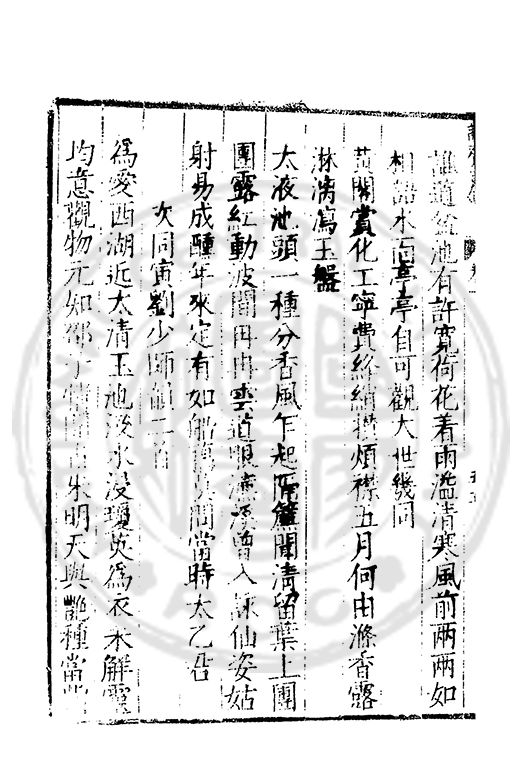 誰道盆池有許寬荷花着雨濫清寒風前兩兩如
相語水面亭亭自可觀大世幾同
黃閣賞化工寧費絲綃攢煩襟五月何由滌香露
淋漓瀉玉盤
太液池頭一種分香風乍起隔簾聞清留葉上團
團露紅動波間冉冉雲道眼濂溪曾入詠仙姿姑
射易成醺年來定有如船藕莫問當時太乙君
次同寅劉少師韻二首
為愛西湖近太清玉池淡水浸瓊英為衣未解靈
均意觀物元如邵子情朱明天與艷種當